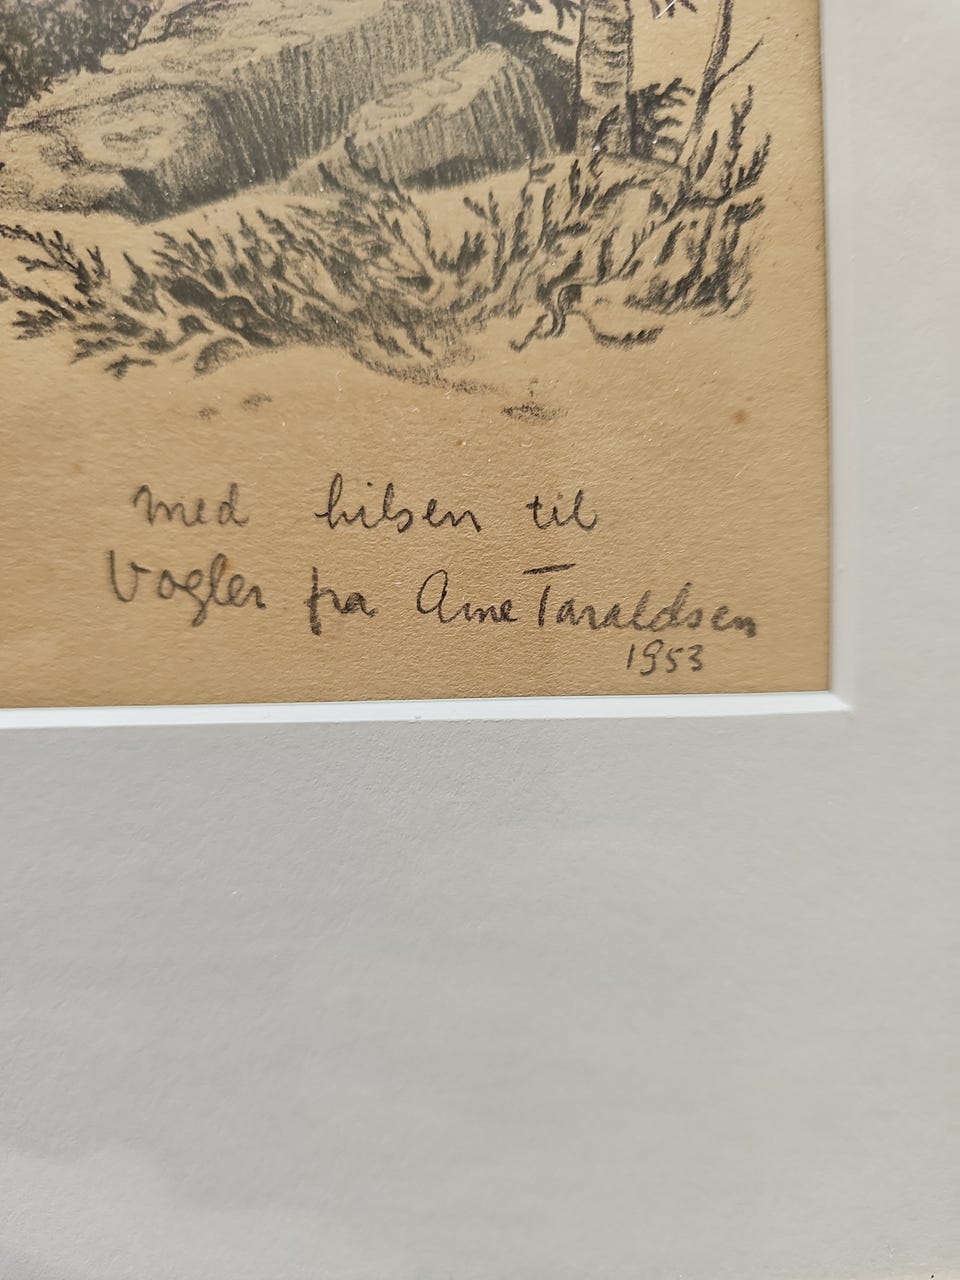 med hilsen til
Vogler fra Arne Taraldsen
1953